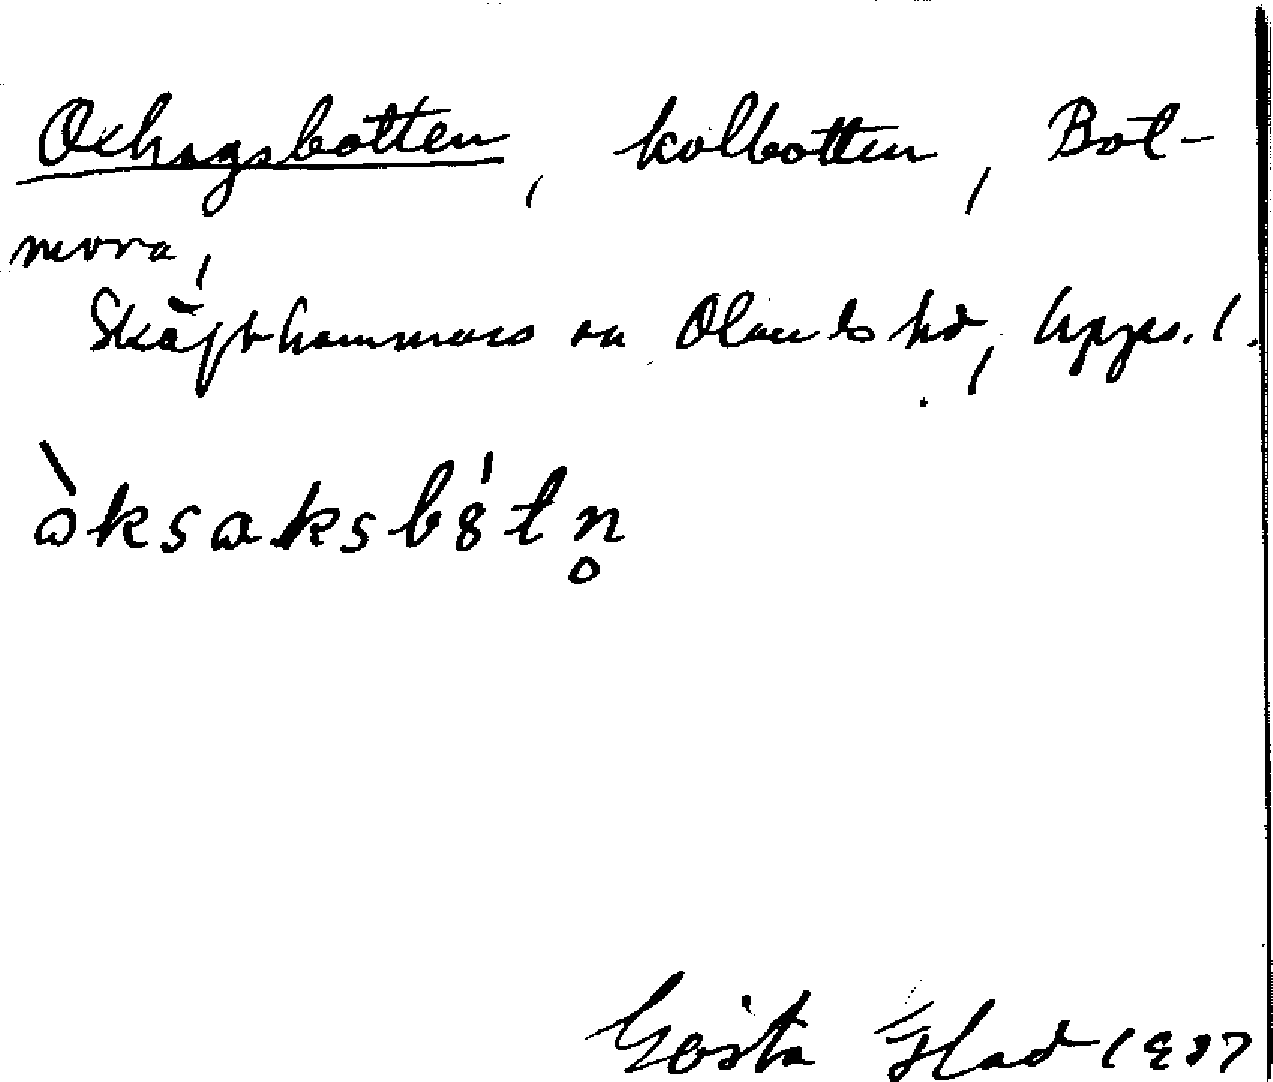 Oxhagsbotten, kolbotten, Bol-
mora,
Skäfthammars sn Olands hd, Upps. l.
òksaksbótn̥
Gösta Blad 1937